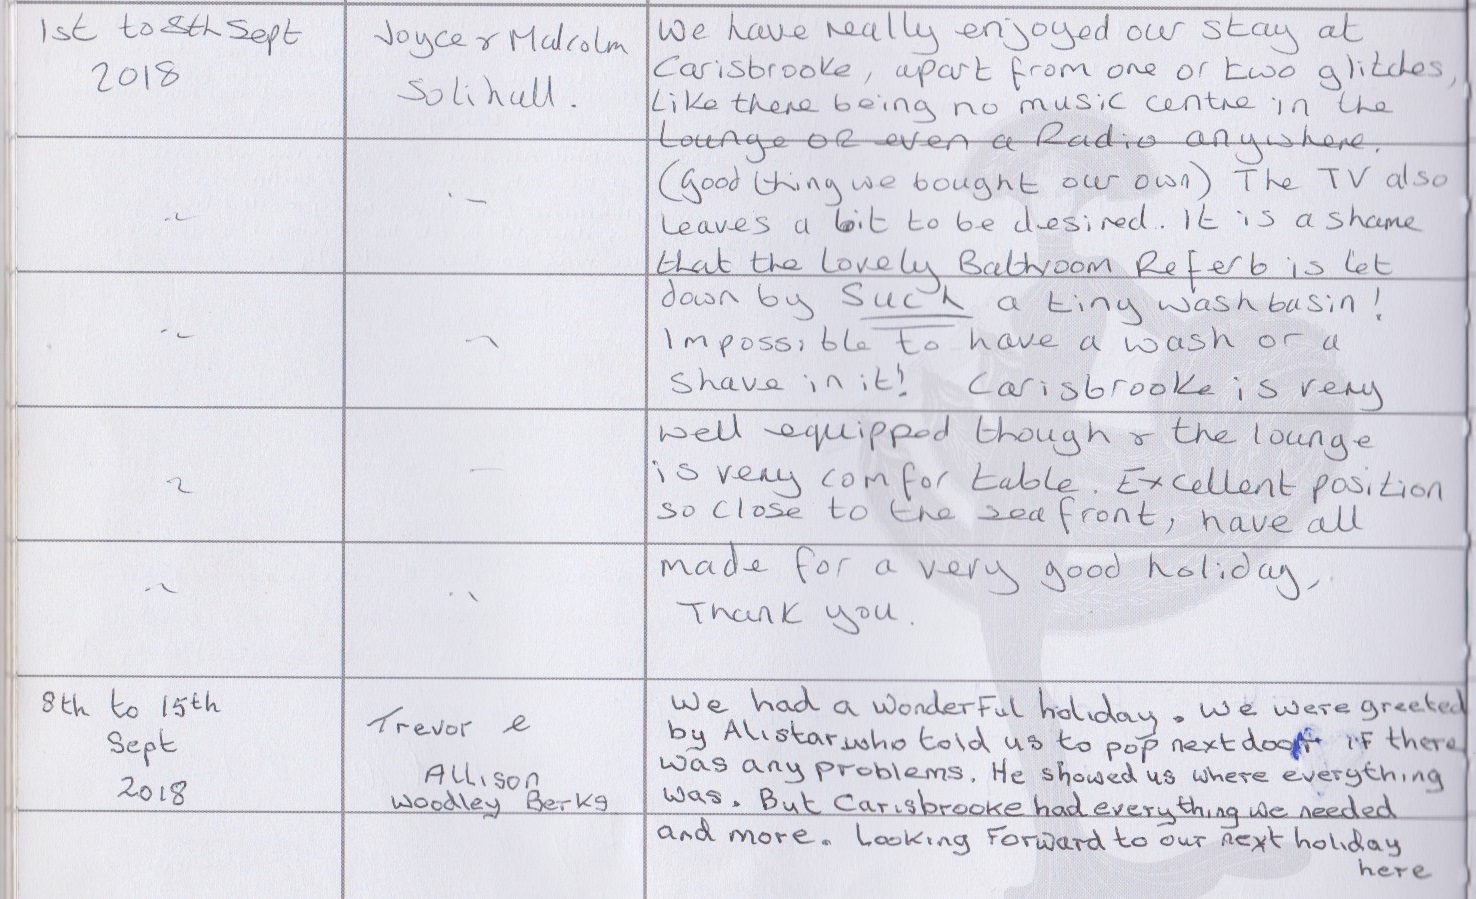 1st to 8th Sept
2018
Joyce & Malcolm
Solihull.
We have really enjoyed our stay at
Carisbrooke, apart from one or two glitches,
Like there being no music centre in the
Lounge OR even a Radio anywhere.
(Good thing we bought our own) The TV also
Leaves a bit to be desired. It is a shame
that the lovely Bathroom Referb is let
down by Such a tiny washbasin!
Impossible to have a wash or a
shave in it! Carisbrooke is very
well equipped though & the lounge
is very comfortable. Excellent position
so close to the sea front, have all
made for a very good holiday,
Thank you.
8th to 15th
Sept
2018
Trevor e
Allison
Woodley Berks
We had a wonderful holiday. We were greeted
by Alistar who told us to pop next door if there
was any problems. He showed us where everything
was. But Carisbrooke had everything we needed
and more. Looking Forward to our next holiday
here